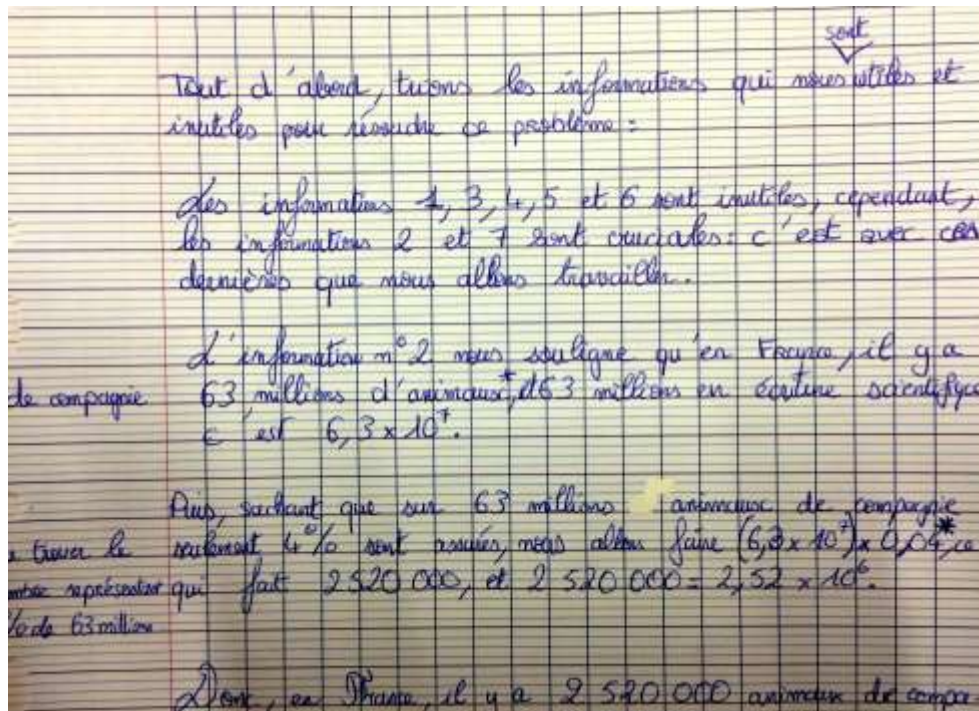 sont
Tout d'abord, trions les informations qui nous utiles et
inutiles pour résoudre ce problème :
Les informations 1, 3, 4, 5 et 6 sont inutiles, cependant,
les informations 2 et 7 sont cruciales : c'est avec ces
dernières que nous allons travailler.
L'information n°2 nous souligne qu'en France, il y a
de compagnie 63 millions d'animaux*, 63 millions en écriture scientifique
c'est 6,3 x 10⁷.
Puis, sachant que sur 63 millions animaux de compagnie
trouver le seulement 4% sont assurés, nous allons faire (6,3 x 10⁷) x 0,04*, ce
représentant qui fait 2 520 000, et 2 520 000 = 2,52 x 10⁶.
% de 63 millions
Donc, en France, il y a 2 520 000 animaux de compa